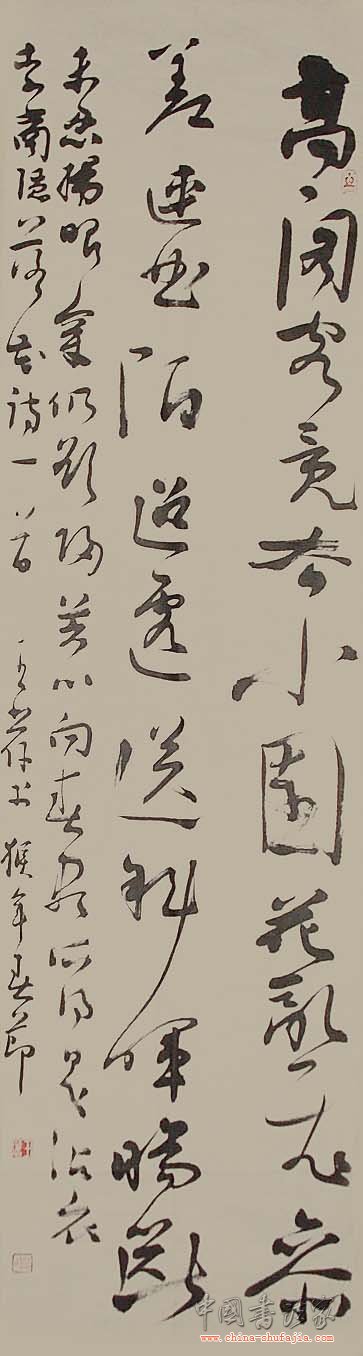 高閣客竟去小園花亂飛參
差連曲陌迢遞送斜暉腸斷
未忍掃眼穿仍欲歸芳心向春盡所得是沾衣
李商隱落花詩一首 書 猴年春節
中國書法家
www.china-shufajia.com